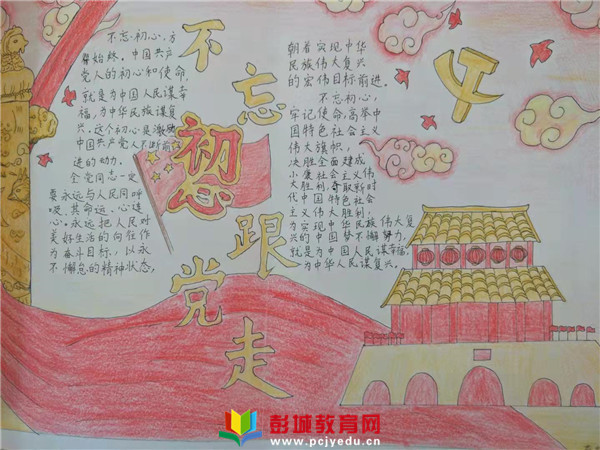 不忘初心
跟党走
不忘初心,方
得始终。中国共产
党人的初心和使命,
就是为中国人民谋幸
福,为中华民族谋复
兴。这个初心是激励
中国共产党人不断前
进的动力.
全党同志一定
要永远与人民同呼
吸、共命运、心连
心。永远把人民对
美好生活的向往作
为奋斗目标,以永
不懈怠的精神状态,
朝着实现中华
民族伟大复兴
的宏伟目标前进。
不忘初心,
牢记使命,高举中
国特色社会主义
伟大旗帜,
决胜全面建成
小康社会主义伟
大胜利,夺取新时
代中国特色社会
主义伟大胜利,
为实现中华民族伟大复
兴的中国梦不懈努力,
就是为中国人民谋幸福,
为中华人民谋复兴。
彭城教育网
www.pcjyedu.cn